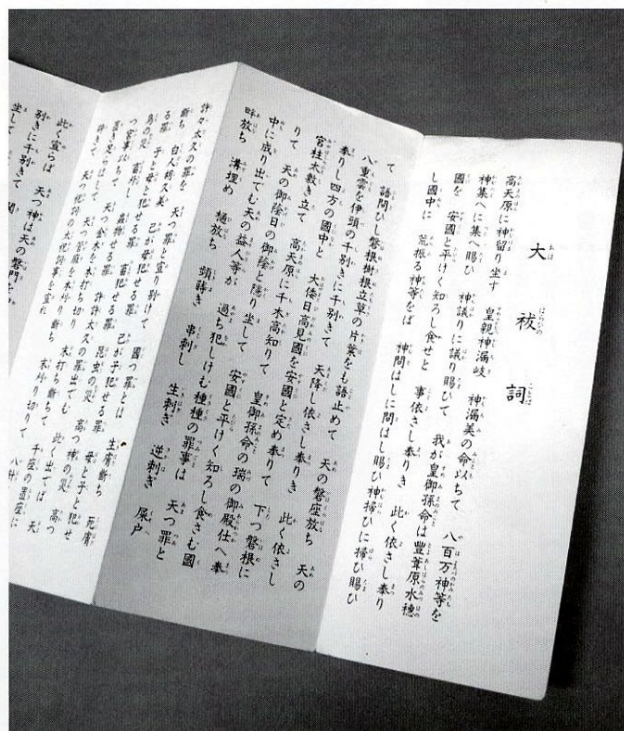 大祓詞
高天原に神留り坐す 皇親神漏岐 神漏美の命以ちて 八百万神等を
神集へに集へ賜ひ 神議りに議り賜ひて 我が皇御孫命は豐葦原水穗
國を 安國と平けく知ろし食せと 事依さし奉りき 此く依さし奉り
し國中に 荒振る神等をば 神問はしに問はし賜ひ神掃ひに掃ひ賜ひ
て 語問ひし磐根樹根立草の片葉をも語止めて 天の磐座放ち 天の
八重雲を伊頭の千別きに千別きて 天降し依さし奉りき 此く依さし
奉りし四方の國中と 大倭日高見國を安國と定め奉りて 下つ磐根に
宮柱太敷き立て 高天原に千木高知りて 皇御孫命の瑞の御殿仕へ奉
りて 天の御蔭日の御蔭と隱り坐して 安國と平けく知ろし食さむ國
中に成り出でむ天の益人等が 過ち犯しけむ種種の罪事は 天つ罪と
畔放ち 溝埋め 樋放ち 頻蒔き 串刺し 生剝ぎ 逆剝ぎ 屎戸
許々太久の罪を 天つ罪と宣り別けて 國つ罪とは 生膚斷ち 死膚
斷ち 白人胡久美 己が母犯せる罪 己が子犯せる罪 母と子と犯せ
る罪 子と母と犯せる罪 畜犯せる罪 昆虫の災 高つ神の災 高つ
鳥の災 畜仆し 蠱物せる罪 許許太久の罪出でむ 此く出でば 天
つ宮事以ちて 天つ金木を本打ち切り 末打ち斷ちて 千座の置座に
置き足らはして 天つ菅麻を本刈り斷ち 末刈り切りて 八針
辟きて 天つ祝詞の太祝詞事を宣れ
此く宣らば 天つ神は天の磐門を
別きに千別きて 聞
坐して